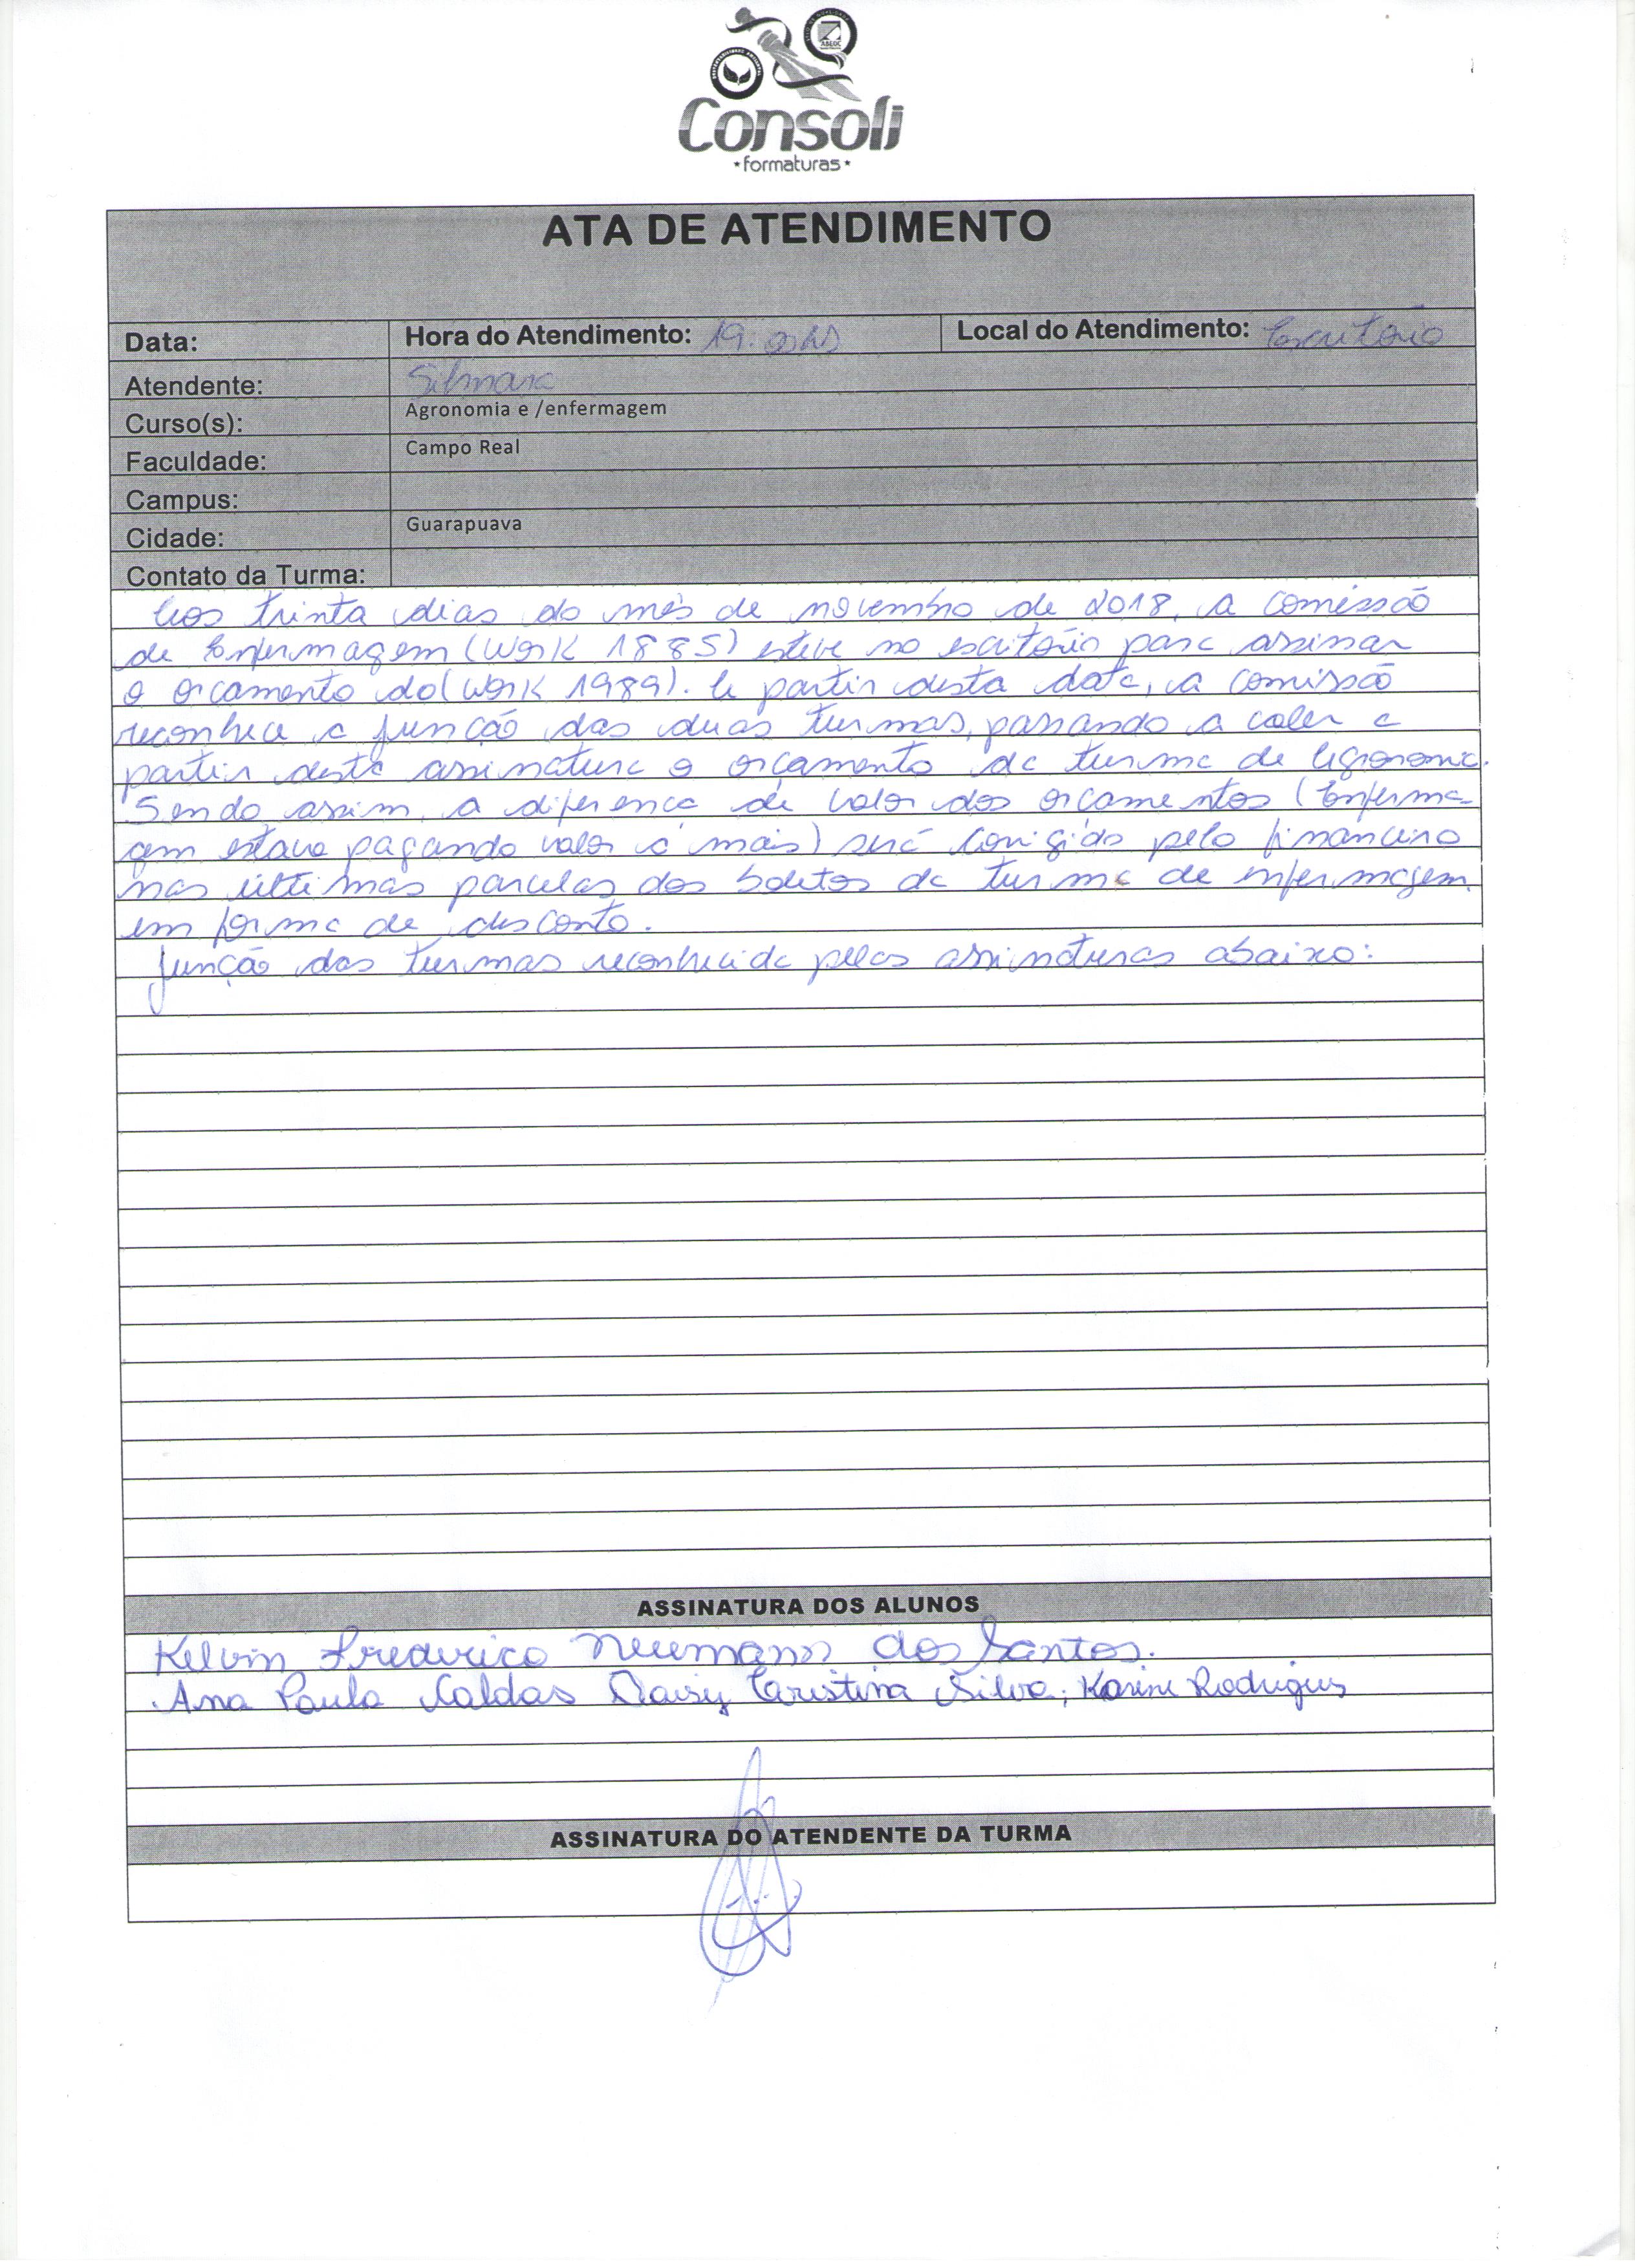 Consoli
*formaturas*
ATA DE ATENDIMENTO
Data: Hora do Atendimento: 19:00hs Local do Atendimento: Escritório
Atendente: Silmara
Curso(s): Agronomia e /enfermagem
Faculdade: Campo Real
Campus:
Cidade: Guarapuava
Contato da Turma:
Aos trinta dias do mês de novembro de 2018, a comissão
de Enfermagem (Work 1885) esteve no escritório para assinar
o orçamento do (Work 1989). A partir desta data, a comissão
reconhece a junção das duas turmas, passando a valer a
partir desta assinatura o orçamento da turma de Agronomia.
Sendo assim, a diferença de valor dos orçamentos (Enferma-
gem estava pagando valor a mais) será corrigido pelo financeiro
nas últimas parcelas dos boletos da turma de enfermagem.
em forma de desconto.
Junção das turmas reconhecida pelas assinaturas abaixo:
ASSINATURA DOS ALUNOS
Kelvin Frederico Neumann dos Santos.
Ana Paula Caldas Daisy Cristina Silva; Karine Rodrigues
ASSINATURA DO ATENDENTE DA TURMA